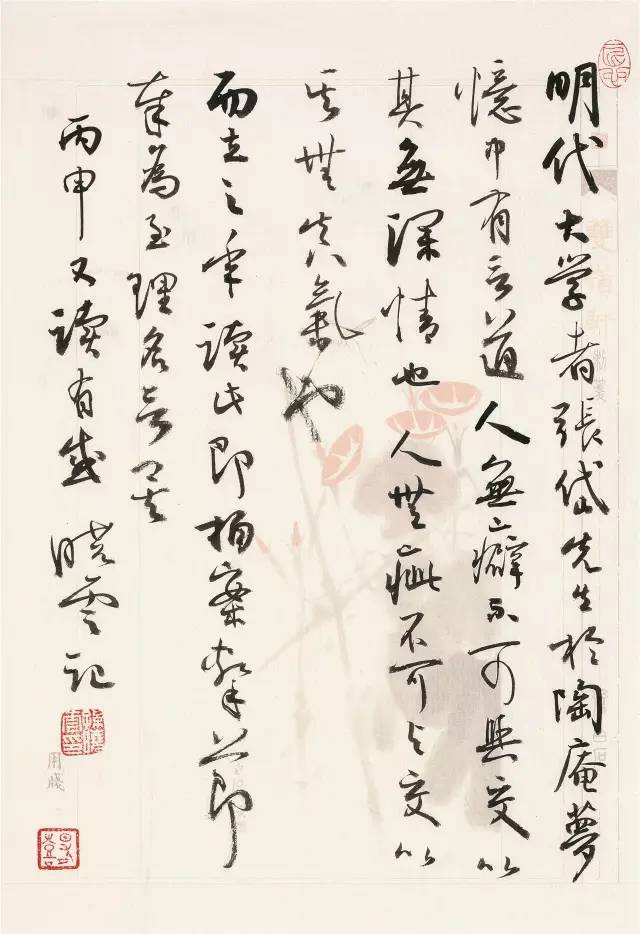 明代大学者張岱先生於陶庵夢
憶中有言道人無癖不可與交以
其無深情也人無疵不可与交以
其無真氣也
而立之年讀此即拍案擊節
奉為至理名言矣
丙申又讀有感
曉雲記
用牋